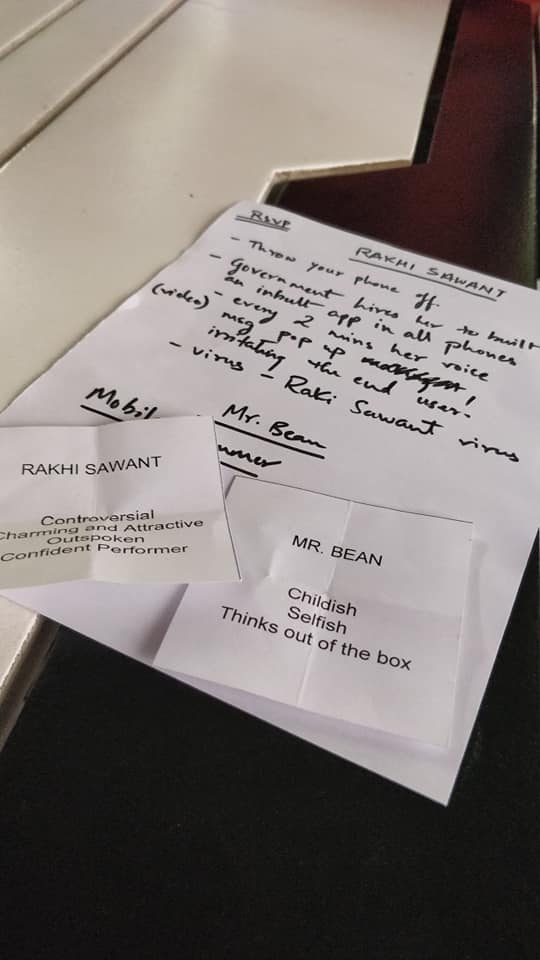 RSVP
RAKHI SAWANT
- Throw your phone off.
- Government hires her to built
an inbult app in all phones
- every 2 mins her voice
(video) msg pop up !
irritating the end user.
- virus - Raki Sawant virus
Mobil
Mr. Bean
mmer
RAKHI SAWANT
Controversial
Charming and Attractive
Outspoken
Confident Performer
MR. BEAN
Childish
Selfish
Thinks out of the box